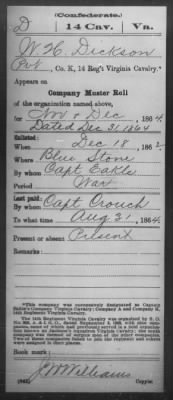 (Confederate.)
D 14 Cav. Va.
W. H. Dickson
Pvt, Co. K, 14 Reg't Virginia Cavalry.*
Appears on
Company Muster Roll
of the organization named above,
for Nov & Dec, 1864.
Dated Dec 31, 1864
Enlisted:
When Dec 18, 1862.
Where Blue Stone
By whom Capt Eakle
Period War
Last paid:
By whom Capt Crouch
To what time Aug 31, 1864.
Present or absent Present
Remarks:
Book mark:
J W Williams
Copyist.